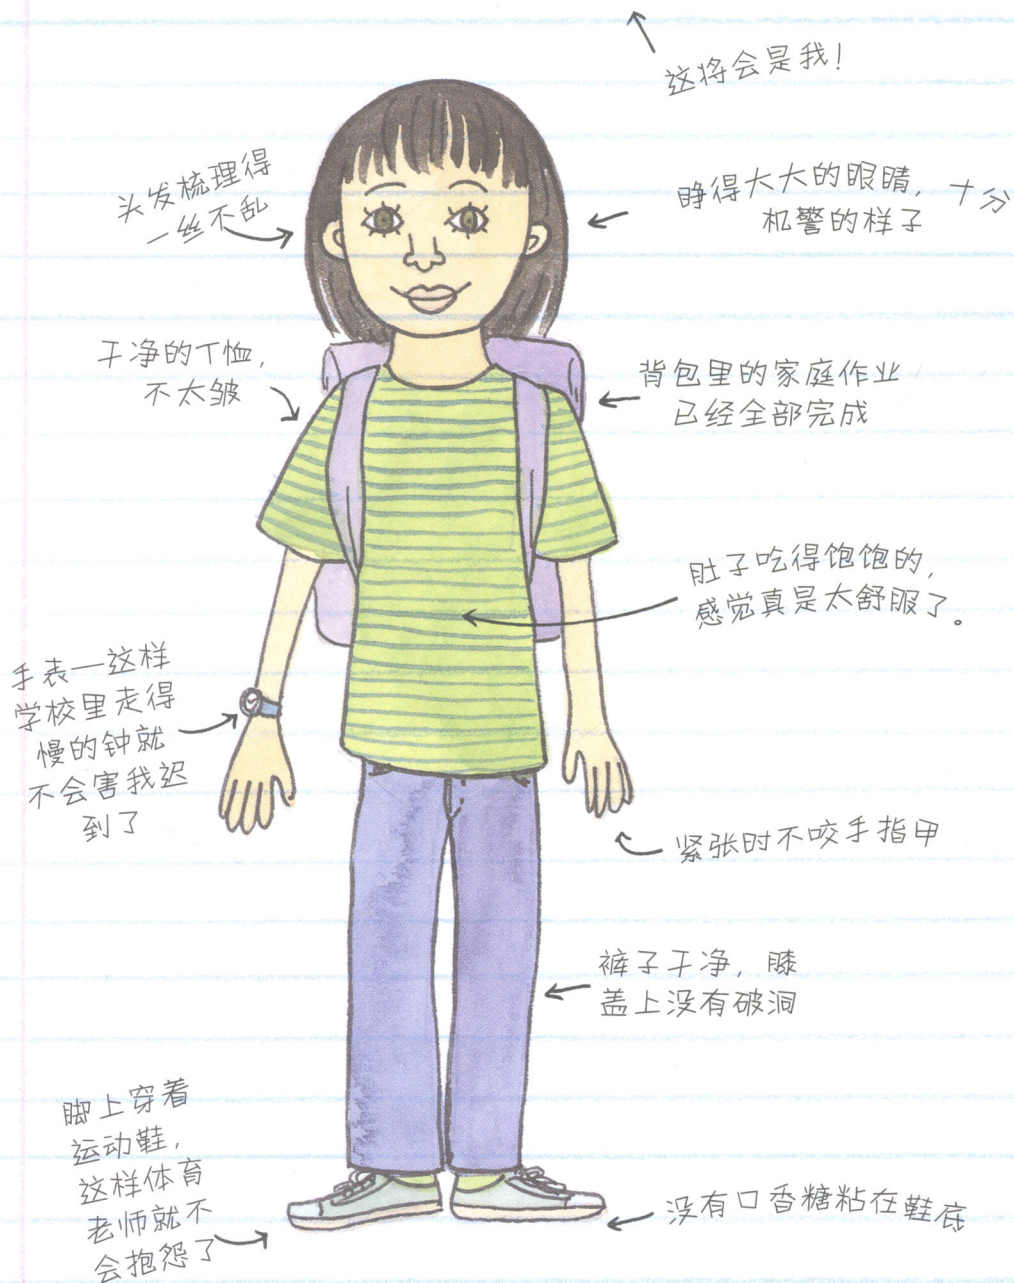 这将会是我！
头发梳理得
一丝不乱
睁得大大的眼睛，十分
机警的样子
干净的T恤，
不太皱
背包里的家庭作业
已经全部完成
肚子吃得饱饱的，
感觉真是太舒服了。
手表—这样
学校里走得
慢的钟就
不会害我迟
到了
紧张时不咬手指甲
裤子干净，膝
盖上没有破洞
脚上穿着
运动鞋，
这样体育
老师就不
会抱怨了
没有口香糖粘在鞋底